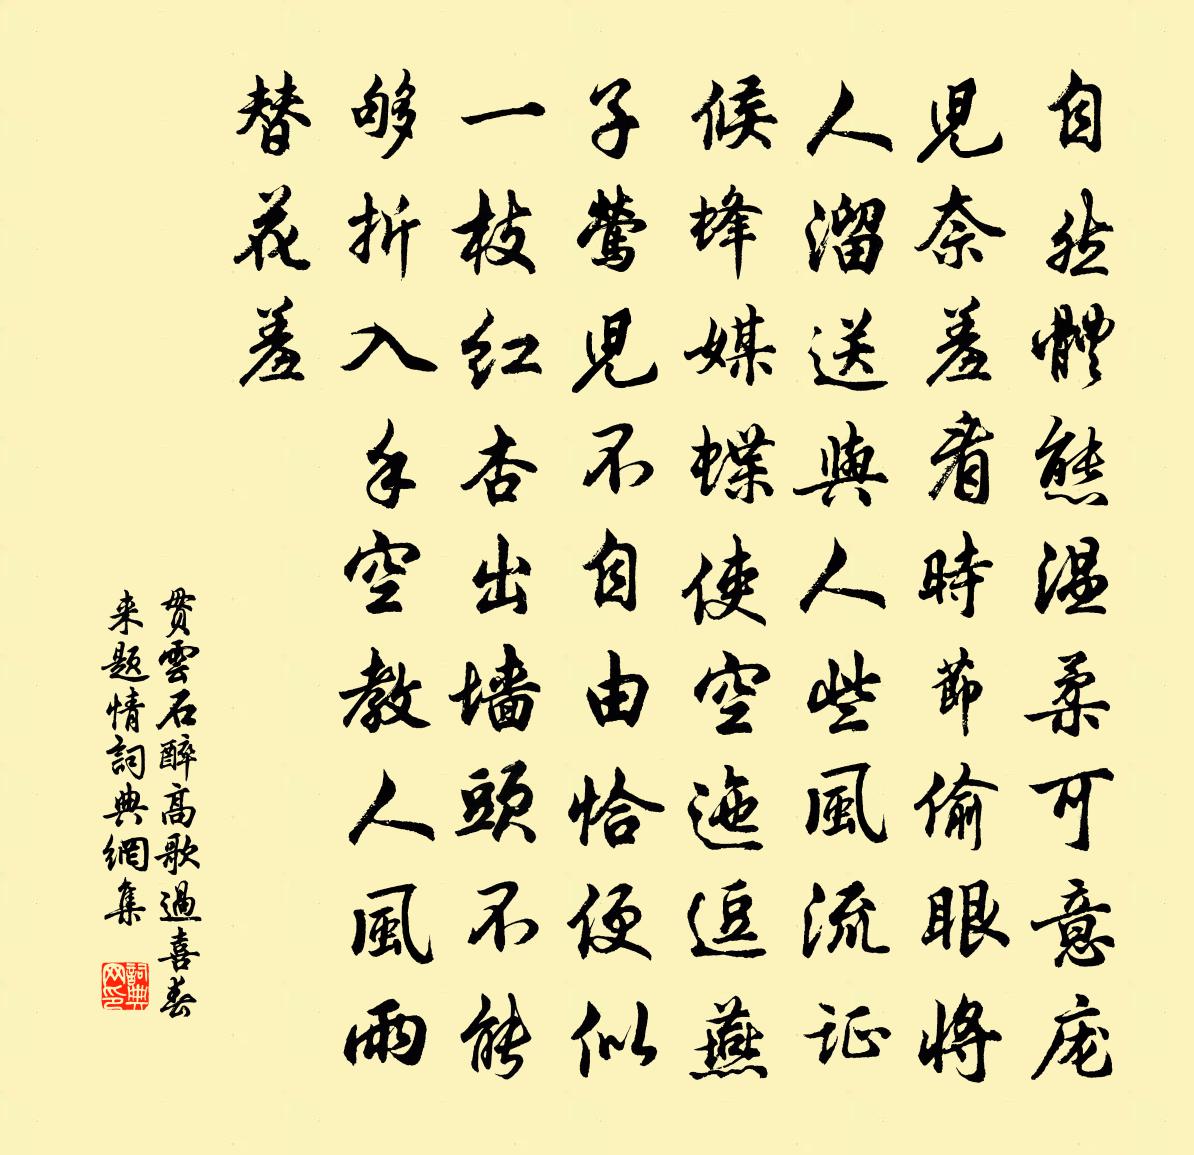 自然體態溫柔可意庞
児奈羞看時節偷眼将
人溜送與人些風流证
候蜂媒蝶使空迤逗燕
子鶯児不自由恰便似
一枝红杏出墙頭不能
够折入手空教人風雨
替花羞
贯雲石醉高歌過喜春
来题情詞典網集
詞典
网印